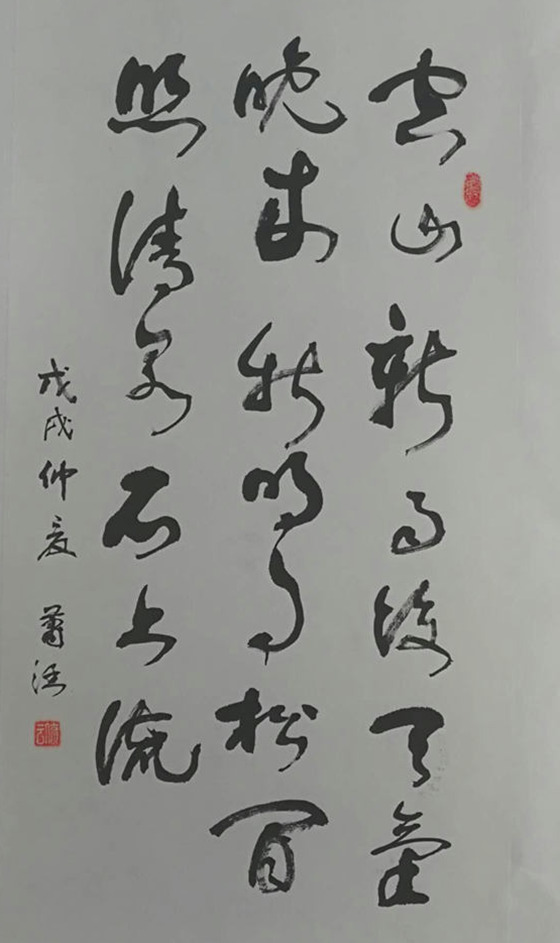 空山新雨後天氣
晚來秋明月松間
照清泉石上流
戊戌仲夏